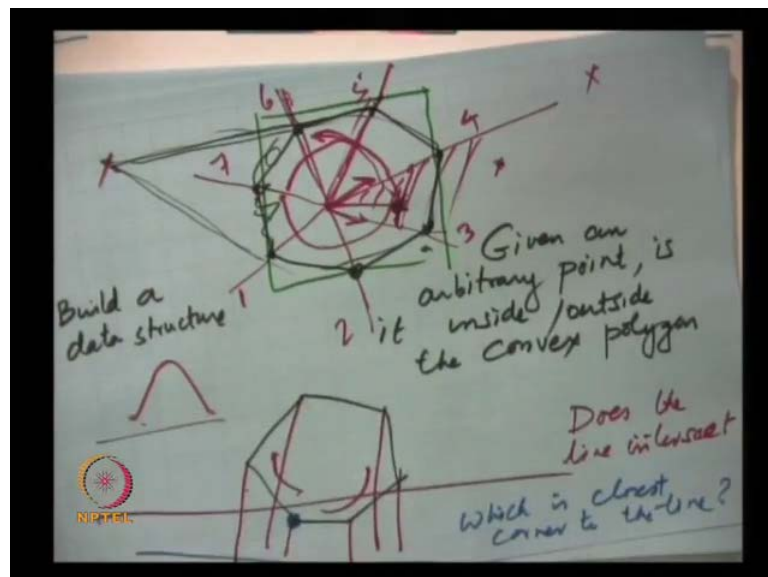 6
5
4
7
3
1
2
Build a
data structure
Given an
arbitrary point, is
it inside/outside
the convex polygon
Does the
line intersect
Which is closest
corner to the line?
NPTEL